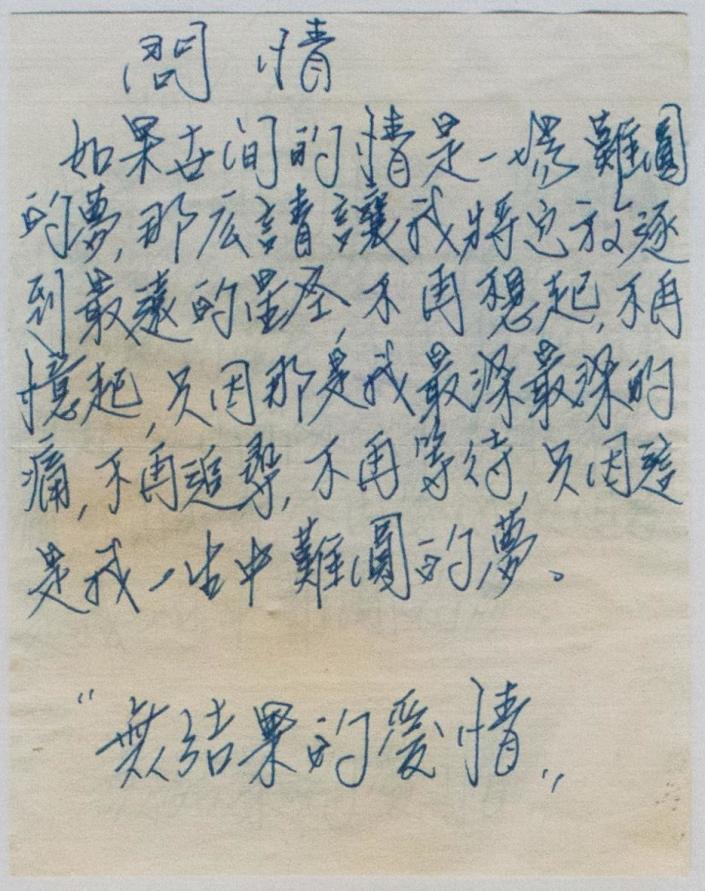 問情
如果世间的情是一塲難圓
的夢,那広請讓我將它放逐
到最遠的星圣,不再想起,不再
憶起,只因那是我最深最深的
痛,不再追尋,不再等待,只因這
是我一生中難圓的夢。
"無結果的愛情"